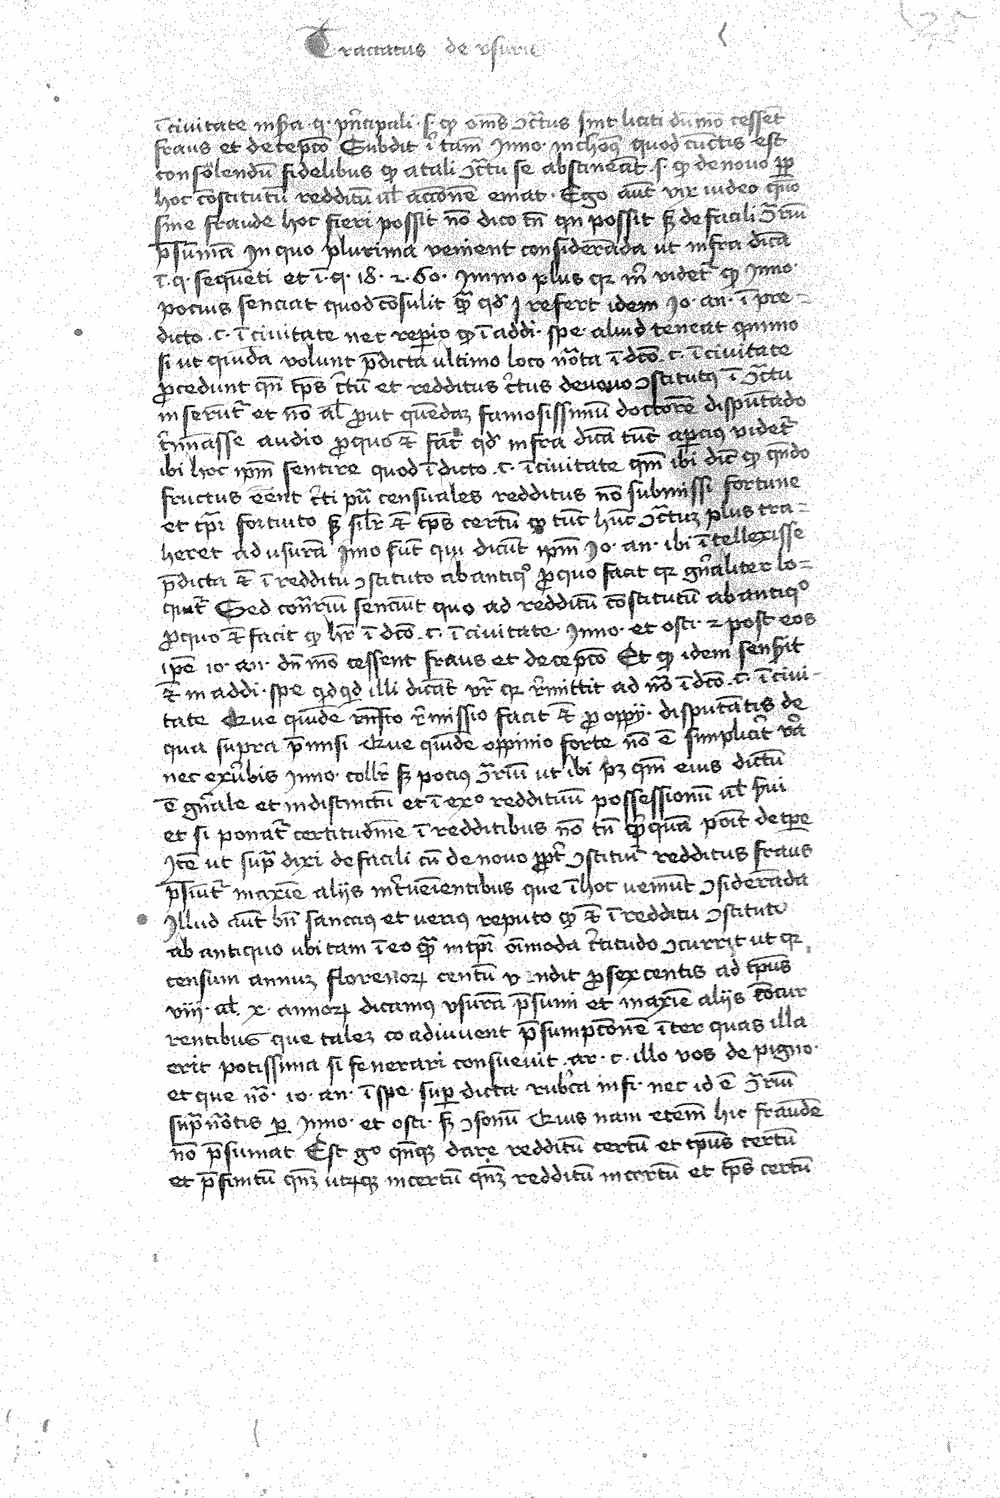 Tractatus de usuris
25
ī civitate infra .q. pñcipali .s. qͥ om̄s ꝯctus sint liciti dūmō cessent
fraus et deceptō Subdit ī tam̄ Inno. in choñ quod cunctis est
consolendū fidelibus qͥ a tali ꝯctu se abstineāt .s. qͥ de novo ꝓp
hoc cōstitutū redditū ul̄ accionē emat. Ego aut̄ vix video qūo
sine fraude hoc fieri possit nō dico tn̄ qn̄ possit sꝫ de facili ꝯriū
p̄sumā In quo plurima veniēnt considerāda ut infra dicā
ī .q. sequēti et ī .q. 18. ⁊ .60. Immo plus qꝛ m̄ videt̄ qͥ Inno.
pocius senciat quod cōsulit qͣ̄ qd̓ refert idem Io. an. ī pre-
dicto .c. ī civitate nec reperio qͥ ī addi. spe. aliud teneat q̄nimo
si ut quidā volunt p̄dicta ultimo loco nōta ī dcō .c. ī civitate
ꝓcedunt qn̄ tp̄s c̄tū et redditus c̄tus de novo ꝯstitutꝰ ī ꝯctu
inserūt̄ et nō al̄ ꝓut quendaꝫ famosissimū doctorē disputādo
t̄mīasse audio ꝓ quo ē fac̄ qd̓ infra dicā tūc apcius videt̄
ibi hoc ip̄m sentire quod ī dicto .c. ī civitate qm̄ ibi dic̄ qͥ qn̄do
fructus eēnt c̄ti pū censuales redditus nō submissi fortune
et tp̄i fortuito sꝫ sil̄r ē tp̄s certū qͥ tūc hūc ꝯctuꝫ plus tra-
heret ad usurā Imo sūt qui dicūt ip̄m Io. an. ibi ītellexisse
p̄dicta ē ī redditu ꝯstituto ab antiqͦ ꝓ quo facit qꝛ gn̄aliter lo-
quit̄ Sed cōn̄riū senciūt quo ad redditū cōstitutū ab antiqͦ
ꝓ quo ē facit qͥ hr̄ ī dcō .c. ī civitate Inno. et osti. ⁊ post eos
ip̄e io. an. dn̄ mō cessent fraus et deceptō Et qͥ idem senserit
ē in addi. spe. qd̓qd̓ illi dicāt vr̄ qꝛ r̄mittit ad nōta ī dcō .c. ī civi-
tate Que quidē remissio facit ē ꝓ oppi. disputātis de
qua supra p̄misi Que quidē oppinio forte nō ē simplicit̄ v̄a
nec ex v̄bis Inno. coll̄r sꝫ pocius ꝯriū ut ibi pꝫ qm̄ eius dictū
ē gn̄ale et indistinctū et ī exͦ reddituū possessionū ul̄ s̄vi
et si ponat̄ certitudinē ī redditibus nō tn̄ qͣ̄quā ponit de tp̄e
Itē ut sup̄ dixi de facili cū de novo ꝓpt̄ ꝯstituit̄ redditus fraus
p̄sūit̄ maxīe aliis int̄venientibus que ī hoc veniūt ꝯsiderāda
Illud aut̄ bn̄ sanctius et verius reputo qͥ ē ī redditu ꝯstituto
ab antiquo ubi tam ī eo qͣ̄ in tp̄i oīmoda c̄titudo ꝯcurrit ut qꝛ
censum annuꝫ florenoꝝ centū vendit ꝓ sexcentis ad tp̄us
viii. al̄ x. annoꝝ dicamꝰ usurā p̄sumi et maxīe aliis cōcur
rentibus que taleꝫ coadiuvent p̄sumpcōnē īter quas illa
erit potissima si fenerari consuevit .ar. c. illo vos de pigno.
et que nō. io. an. ī spe. sup dicta rubͥca in fi. nec id ē ꝯriū
sup̄ nōtis ꝑ Inno. et osti. sꝫ ꝯsonū Quis nam etem̄ hic fraudē
nō p̄sumat Est gͦ qn̄qꝫ dare redditū certū et tp̄us certū
et p̄finitū qn̄qꝫ utꝝqꝫ incertū qn̄qꝫ redditū incertū et tp̄s certū